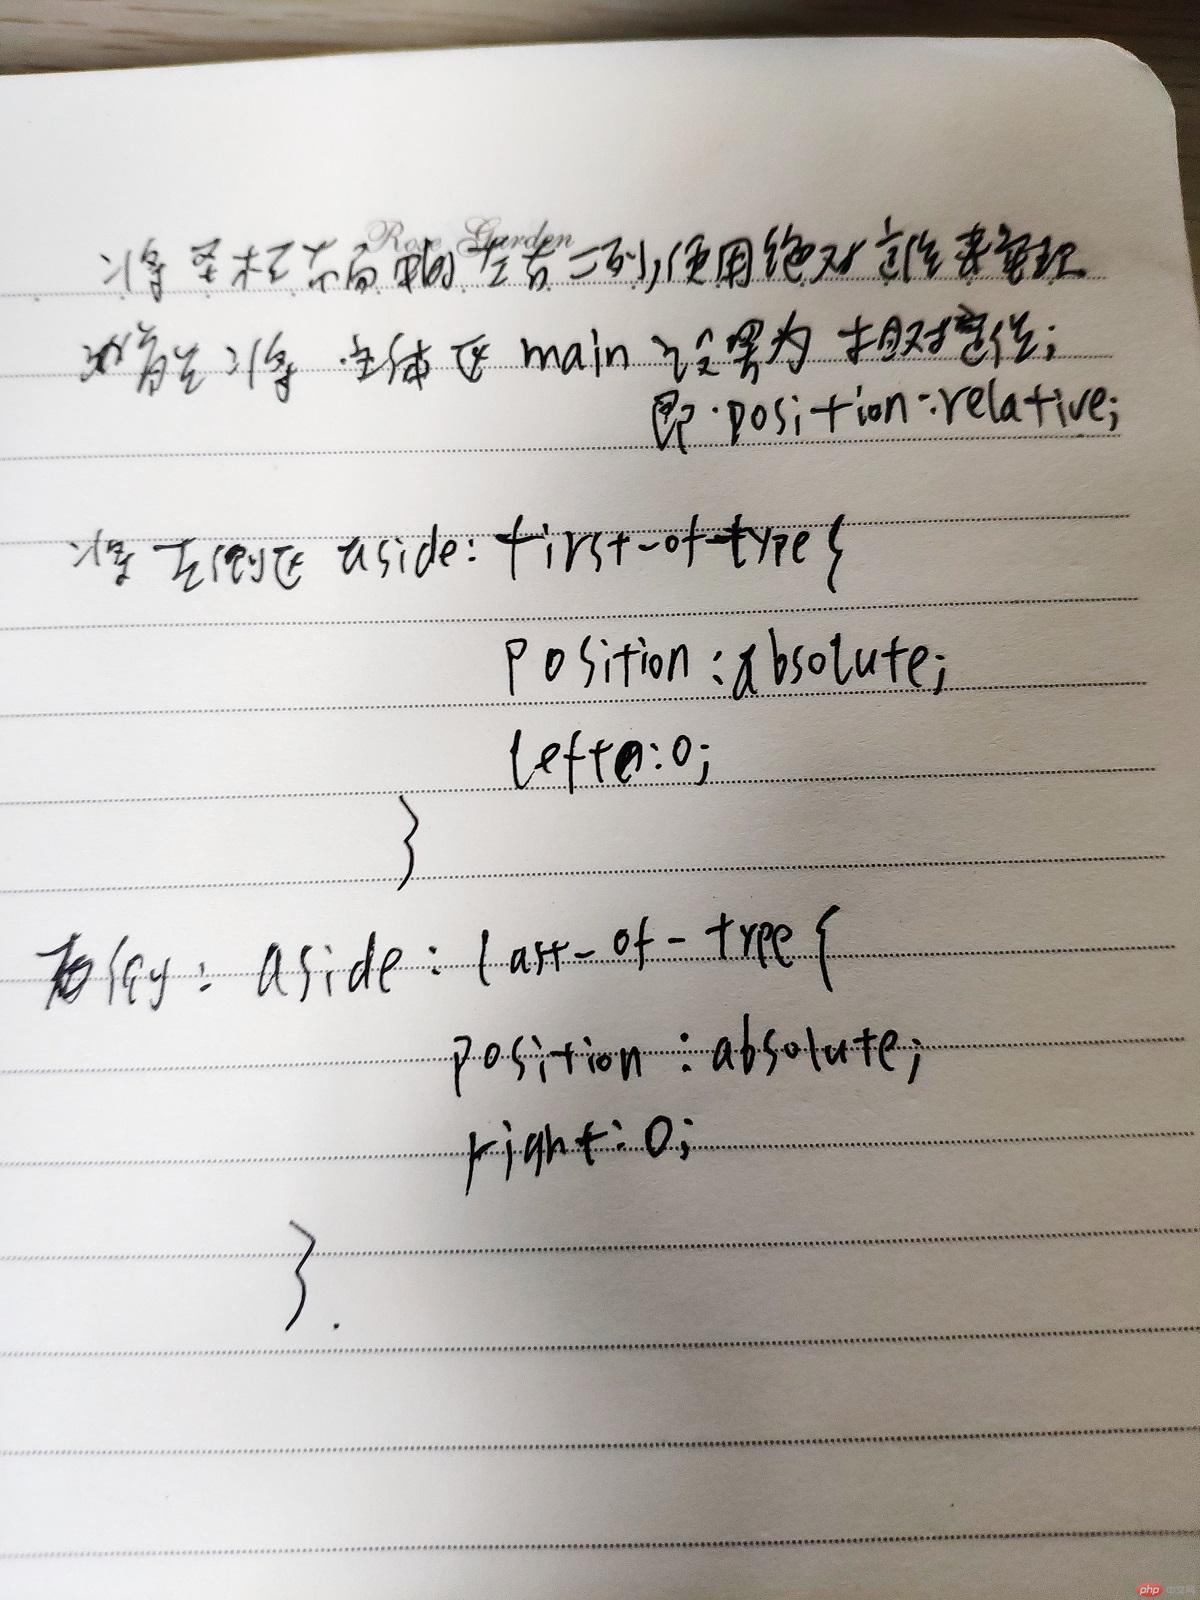 Rose Garden
将圣杯布局中的左右二列,使用绝对定位来实现
首先将主体区 main 设置为相对定位;
即:position:relative;
将左侧区 aside:first-of-type{
position:absolute;
left:0;
}
右侧: aside:last-of-type{
position:absolute;
right:0;
}.
php 中文网